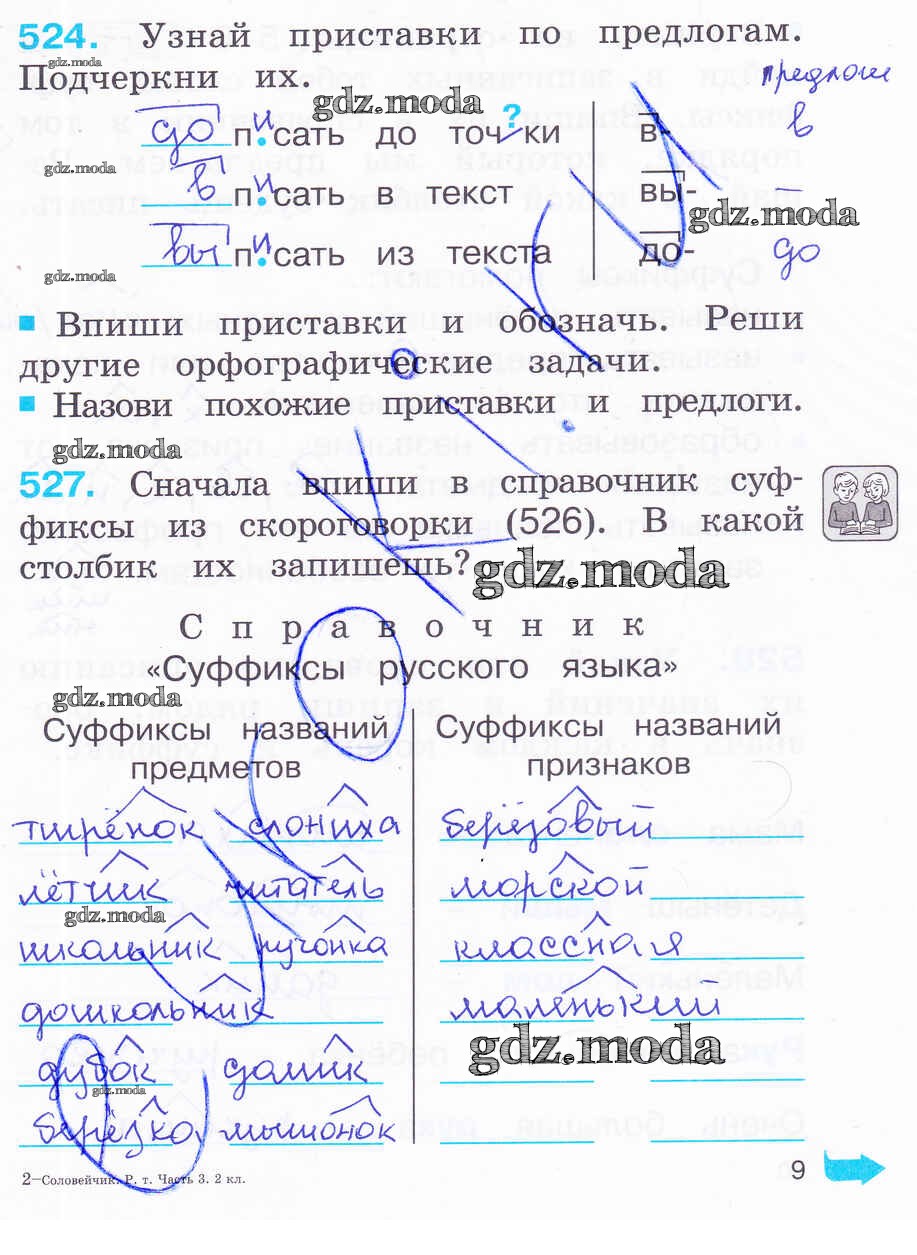 524. Узнай приставки по предлогам.
gdz.moda
Подчеркни их.
предлоги
gdz.moda
до писать до точки ? в- в
gdz.moda
в писать в текст вы-
gdz.moda
вы писать из текста до- до
gdz.moda
Впиши приставки и обозначь. Реши
другие орфографические задачи.
Назови похожие приставки и предлоги.
gdz.moda
527. Сначала впиши в справочник суф-
фиксы из скороговорки (526). В какой
столбик их запишешь?
gdz.moda
Справочник
«Суффиксы русского языка»
gdz.moda
Суффиксы названий предметов
Суффиксы названий признаков
тигрёнок слониха берёзовый
лётчик читатель морской
gdz.moda
школьник ручонка классная
дошкольник маленький
gdz.moda
дубок домик
gdz.moda
берёзка мышонок
2–Соловейчик. Р. т. Часть 3. 2 кл.
9